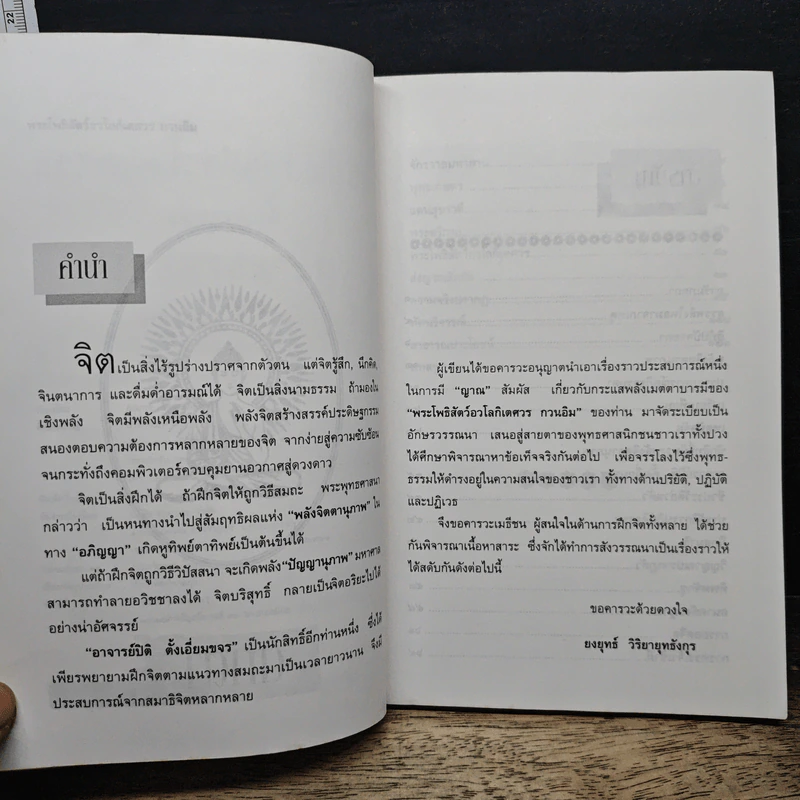 22
คำนำ
จิตเป็นสิ่งไร้รูปร่างปราศจากตัวตน แต่จิตรู้สึก, นึกคิด,
จินตนาการ และดื่มด่ำอารมณ์ได้ จิตเป็นสิ่งนามธรรม ถ้ามองใน
เชิงพลัง จิตมีพลังเหนือพลัง พลังจิตสร้างสรรค์ประดิษฐกรรม
สนองตอบความต้องการหลากหลายของจิต จากง่ายสู่ความซับซ้อน
จนกระทั่งถึงคอมพิวเตอร์ควบคุมยานอวกาศสู่ดวงดาว
จิตเป็นสิ่งฝึกได้ ถ้าฝึกจิตให้ถูกวิธีสมถะ พระพุทธศาสนา
กล่าวว่า เป็นหนทางนำไปสู่สัมฤทธิผลแห่ง “พลังจิตตานุภาพ” ใน
ทาง “อภิญญา” เกิดหูทิพย์ตาทิพย์เป็นต้นขึ้นได้
แต่ถ้าฝึกจิตถูกวิธีวิปัสสนา จะเกิดพลัง“ปัญญานุภาพ” มหาศาล
สามารถทำลายอวิชชาลงได้ จิตบริสุทธิ์ กลายเป็นจิตอริยะไปได้
อย่างน่าอัศจรรย์
“อาจารย์ปิติ ตั้งเอี่ยมขจร” เป็นนักสิทธิ์อีกท่านหนึ่ง ซึ่งได้
เพียรพยายามฝึกจิตตามแนวทางสมถะมาเป็นเวลายาวนาน จึงมี
ประสบการณ์จากสมาธิจิตหลากหลาย
ผู้เขียนได้ขอคารวะอนุญาตนำเอาเรื่องราวประสบการณ์หนึ่ง
ในการมี “ญาณ” สัมผัส เกี่ยวกับกระแสพลังเมตตาบารมีของ
“พระโพธิสัตว์อวโลกิเตศวร กวนอิม” ของท่าน มาจัดระเบียบเป็น
อักษรวรรณนา เสนอสู่สายตาของพุทธศาสนิกชนชาวเราทั้งปวง
ได้ศึกษาพิจารณาหาข้อเท็จจริงกันต่อไป เพื่อจรรโลงไว้ซึ่งพุทธ-
ธรรมให้ดำรงอยู่ในความสนใจของชาวเรา ทั้งทางด้านปริยัติ, ปฏิบัติ
และปฏิเวธ
จึงขอคารวะเมธีชน ผู้สนใจในด้านการฝึกจิตทั้งหลาย ได้ช่วย
กันพิจารณาเนื้อหาสาระ ซึ่งจักได้ทำการสังวรรณนาเป็นเรื่องราวให้
ได้สดับกันดังต่อไปนี้
ขอคารวะด้วยดวงใจ
ยงยุทธ์ วิริยายุทธังกุร